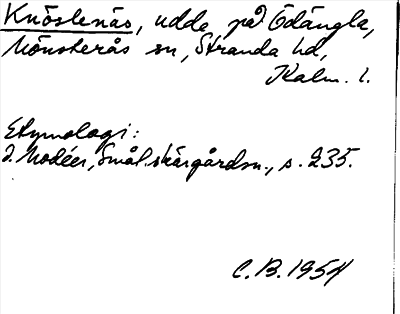 Knöslenäs, udde på Ödängla,
Mönsterås sn, Stranda hd,
Kalm. l.
Etymologi:
I. Modéer, Smål. skärgårdsn., s. 235.
C.B. 1954